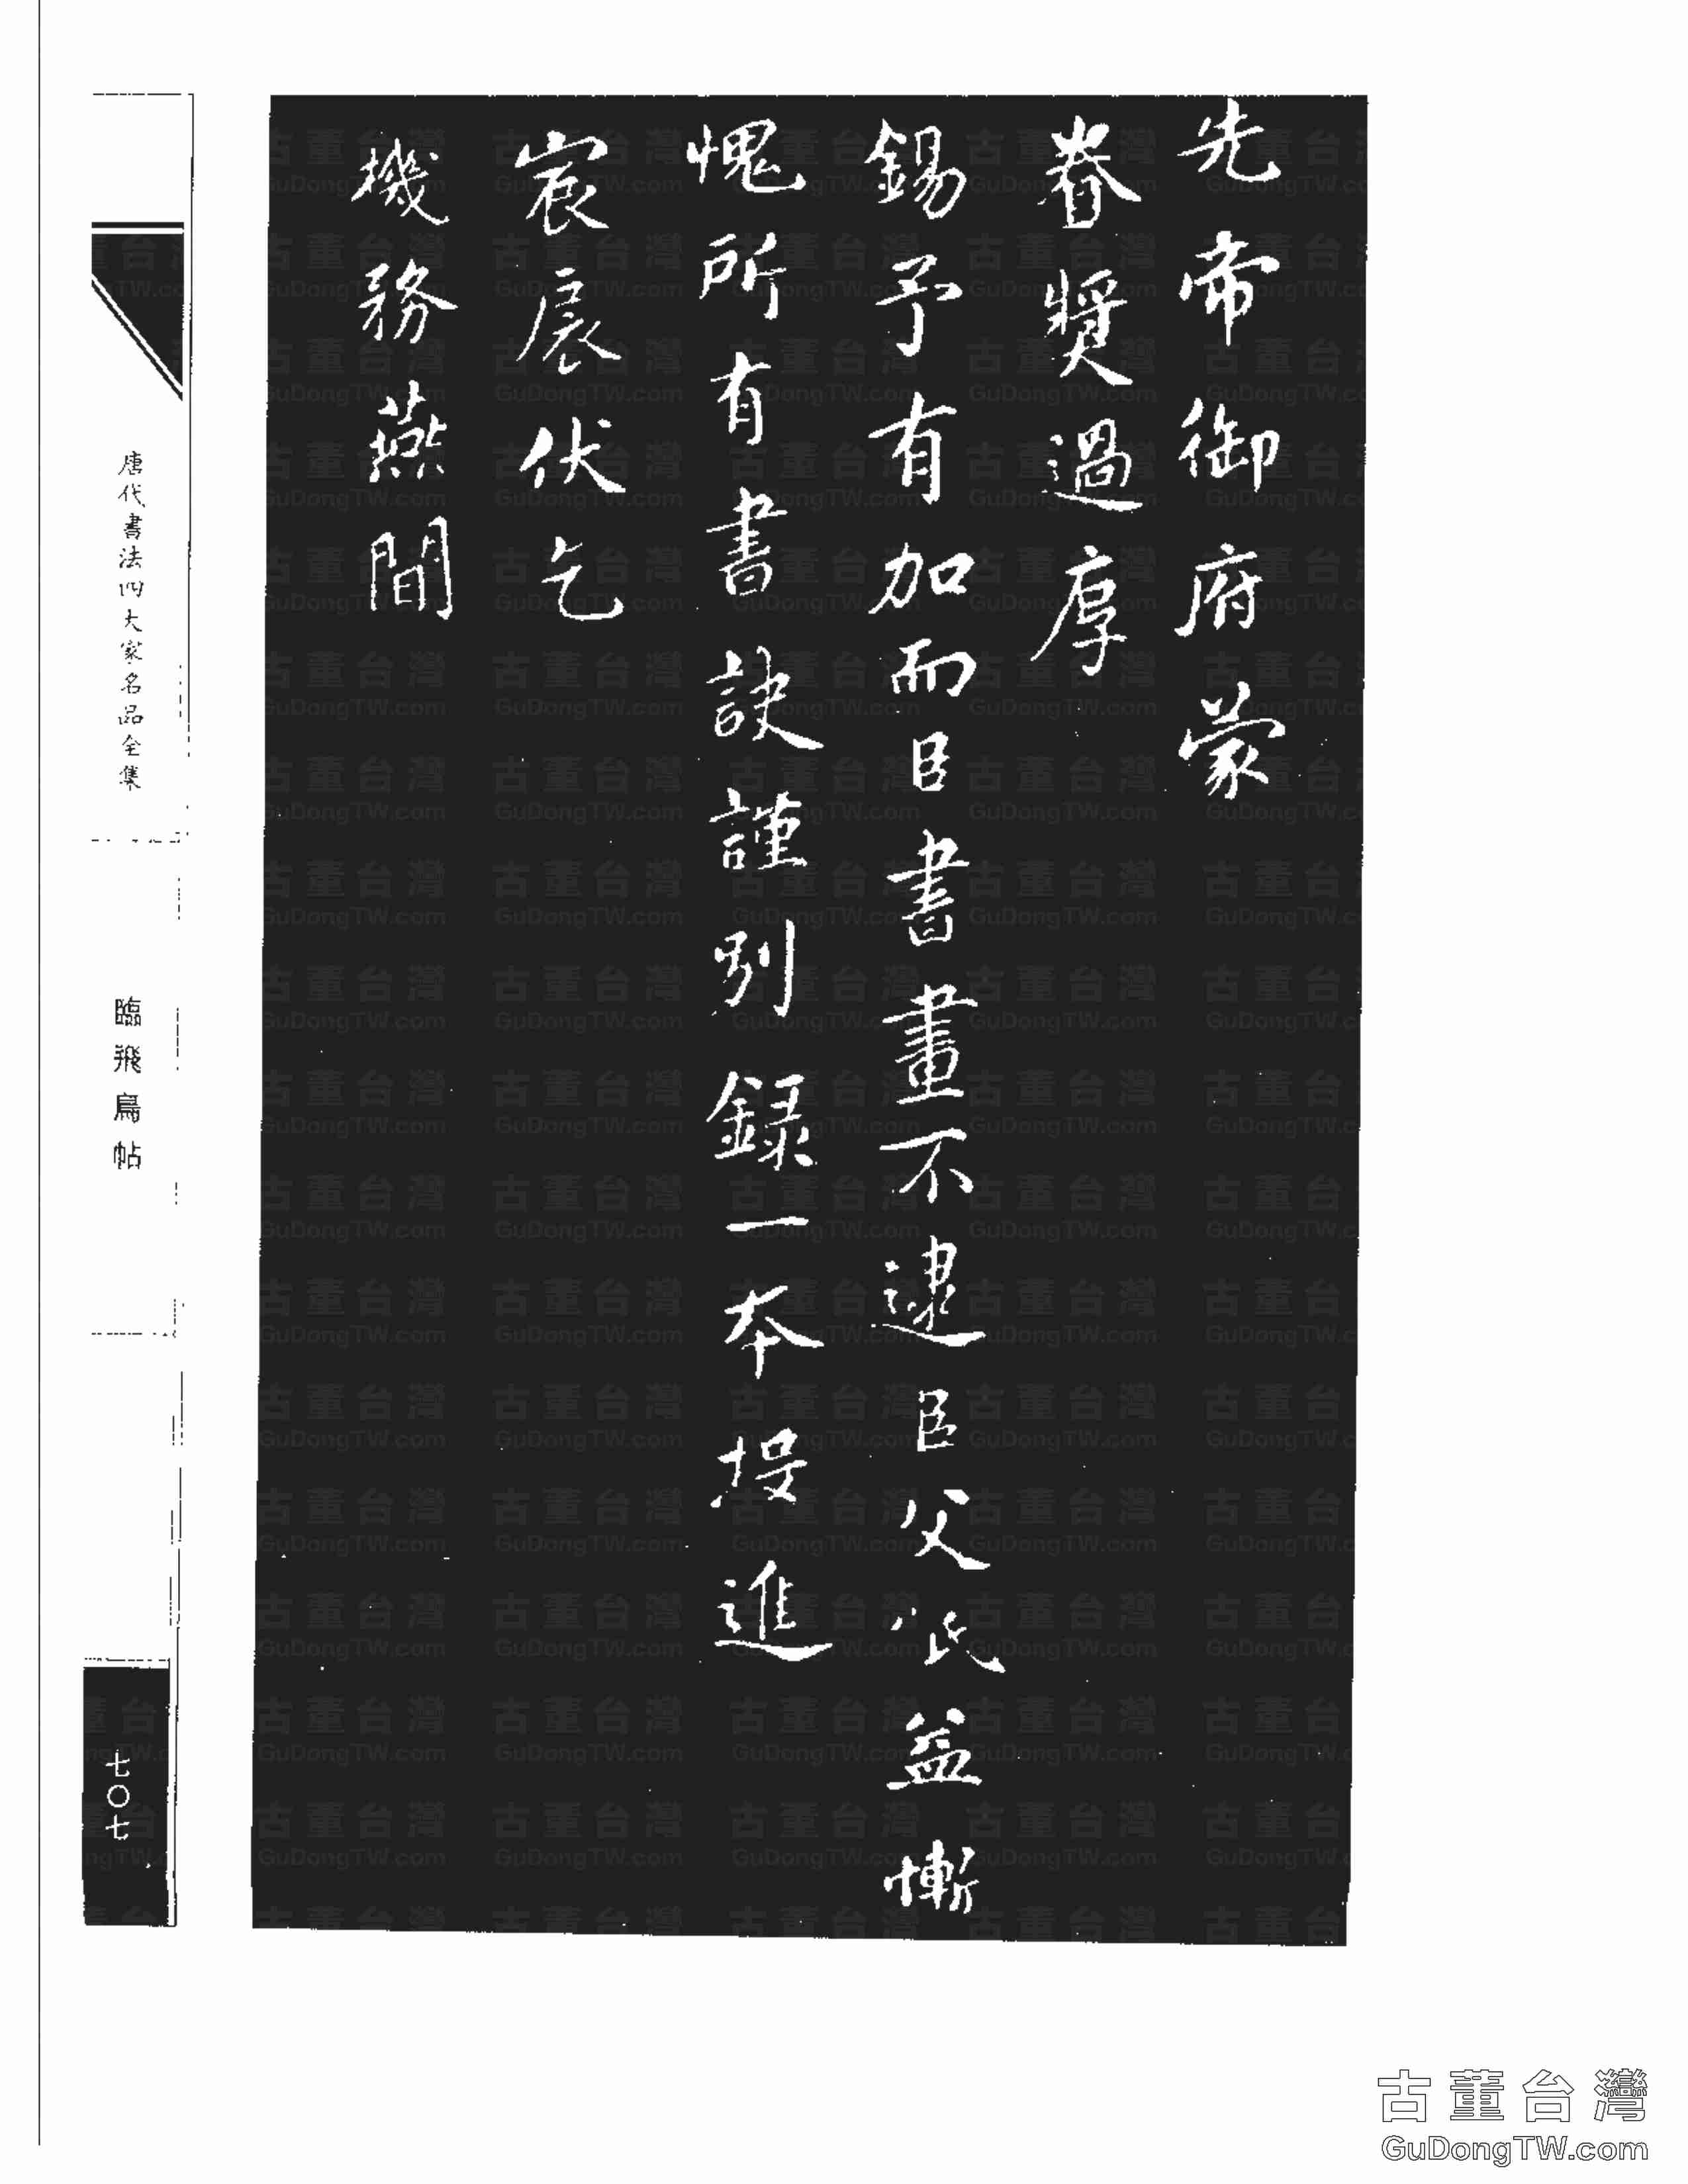 先帝御府蒙
眷獎過厚
錫予有加而臣書畫不逮臣父祇益慚
愧所有書訣謹別錄一本投進
宸扆伏乞
機務燕間
唐代書法四大家名品全集
臨飛鳥帖
七〇七
古董台灣
GuDongTW.com